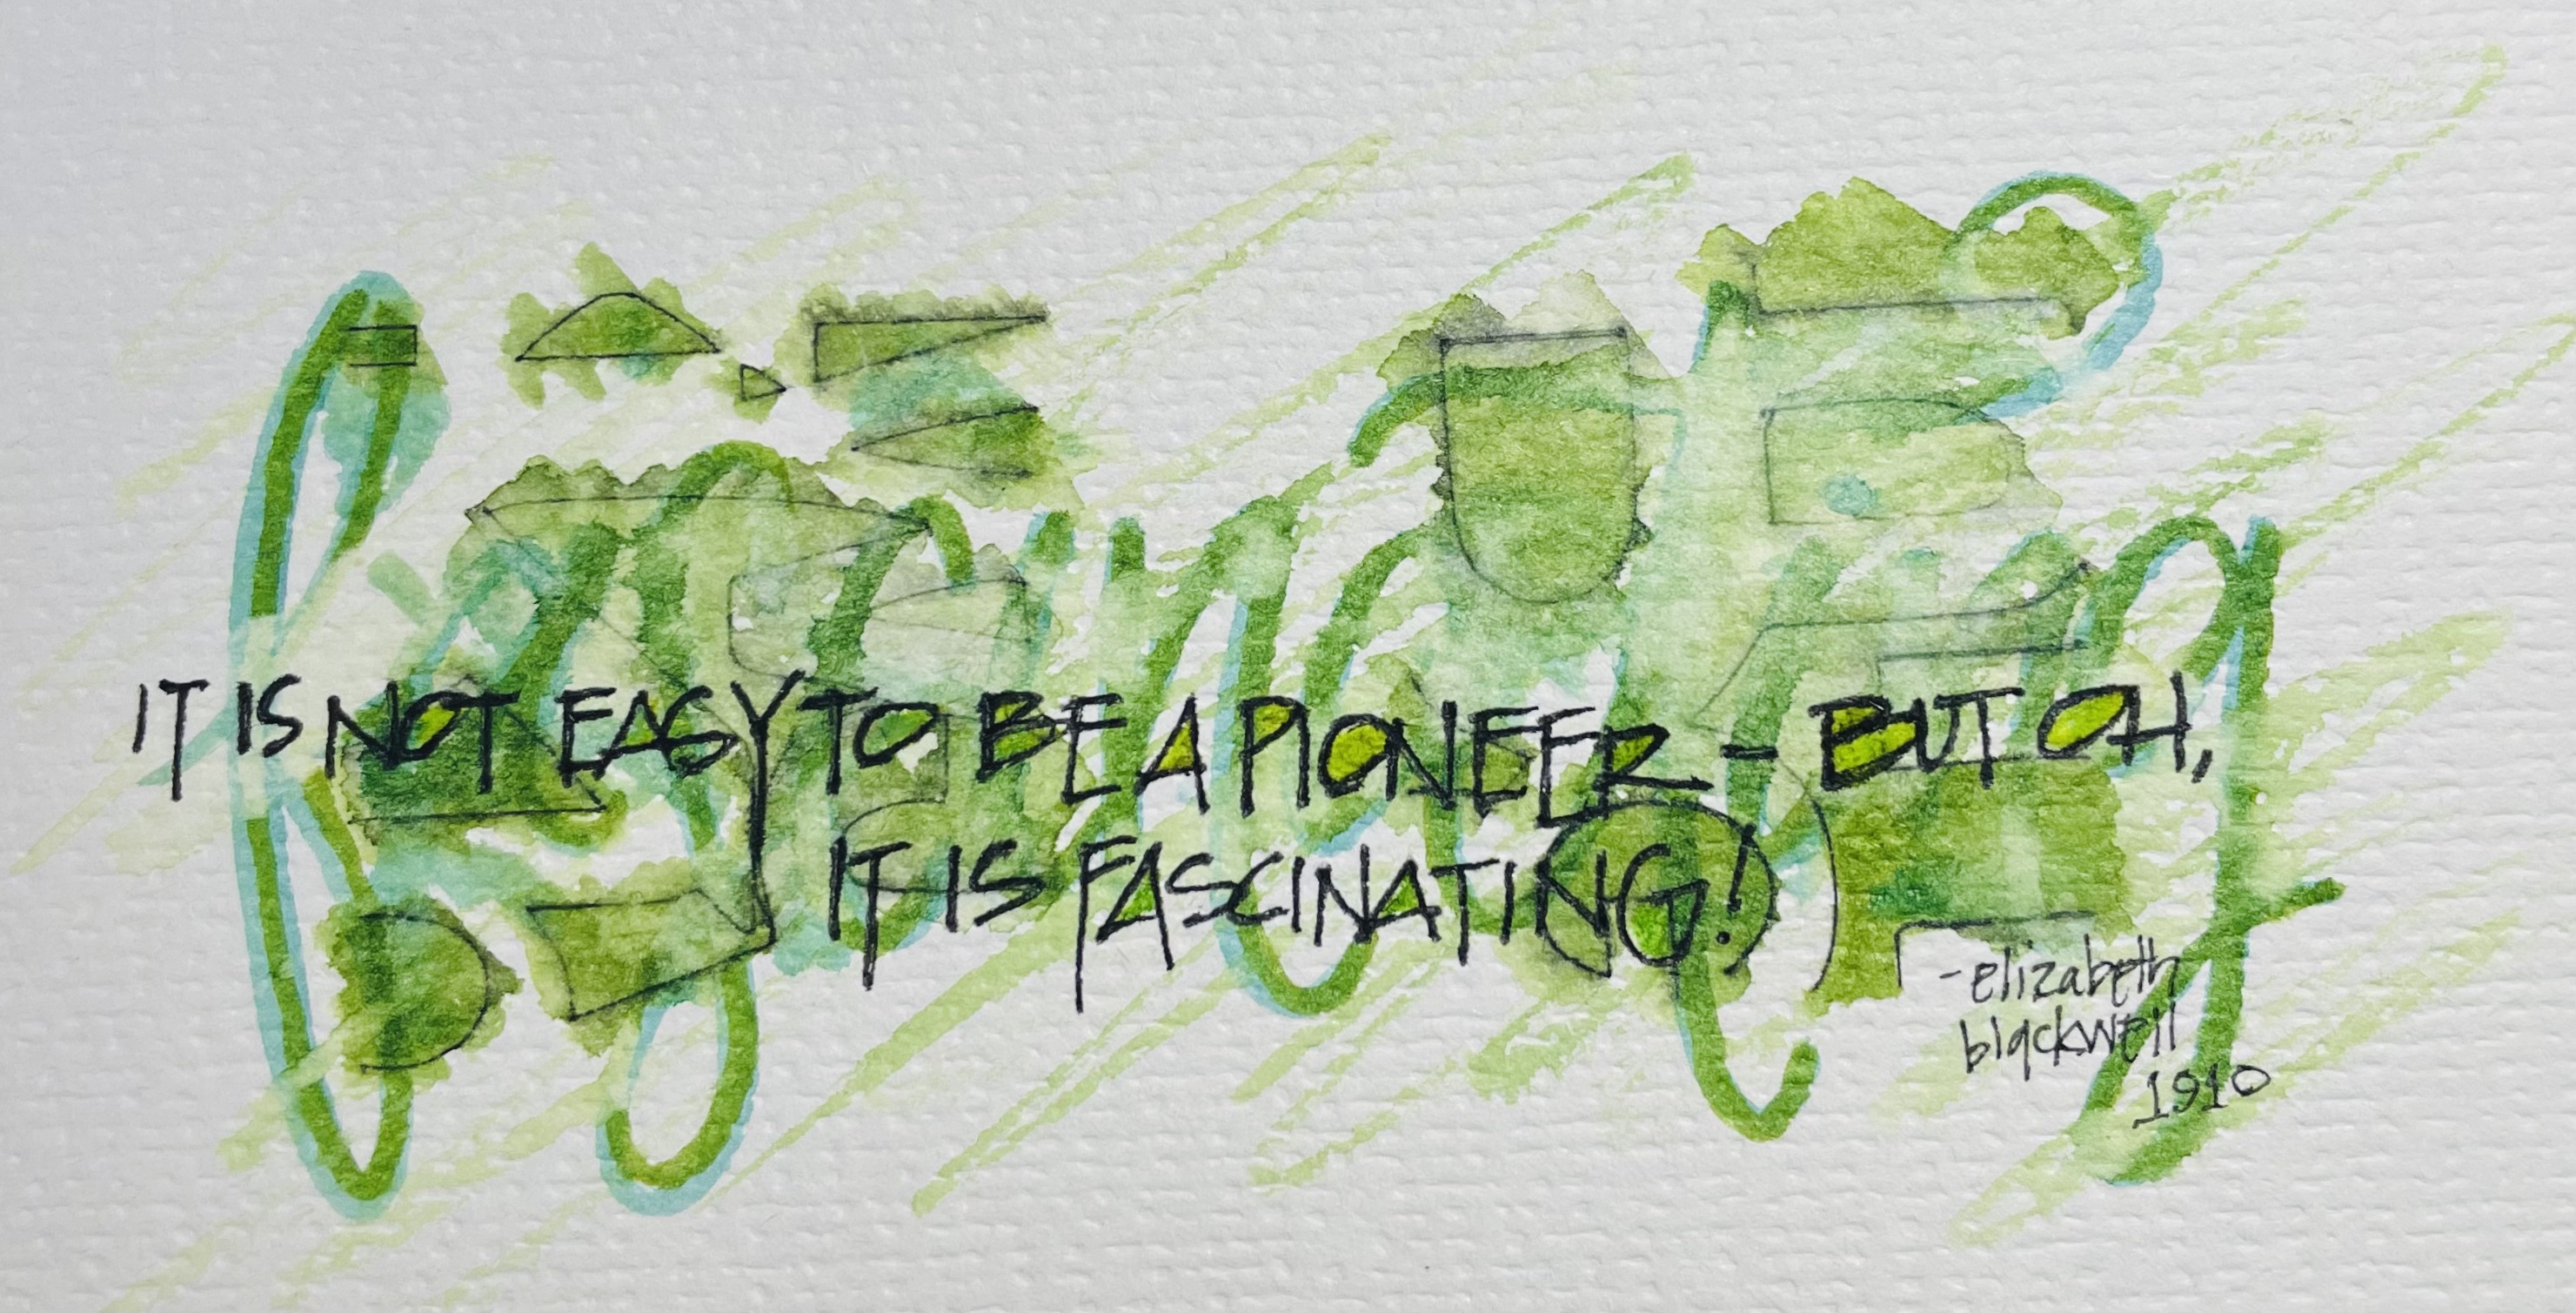 fascinating
IT IS NOT EASY TO BE A PIONEER - BUT OH,
IT IS FASCINATING!
- elizabeth
blackwell
1910